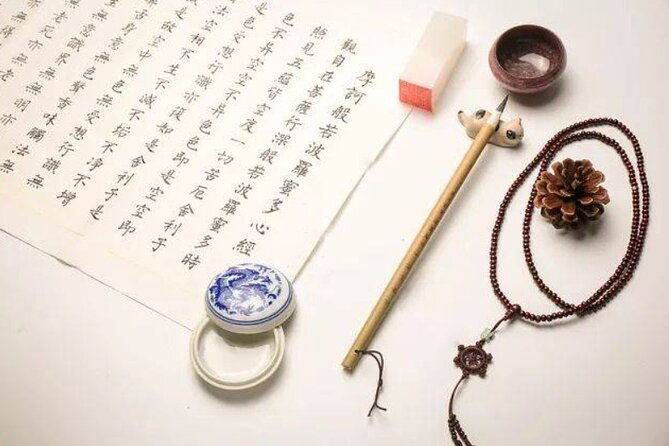 摩訶般若波羅蜜多心經
觀自在菩薩行深般若波羅蜜多時
照見五蘊皆空度一切苦厄舍利子
色不異空空不異色色即是空空即
是色受想行識亦復如是舍利子是
法空相不生不滅不垢不淨不增
空中無色無受想行識無
舌身意無色聲香味觸法無
無意識界無無明亦無
死亦無老